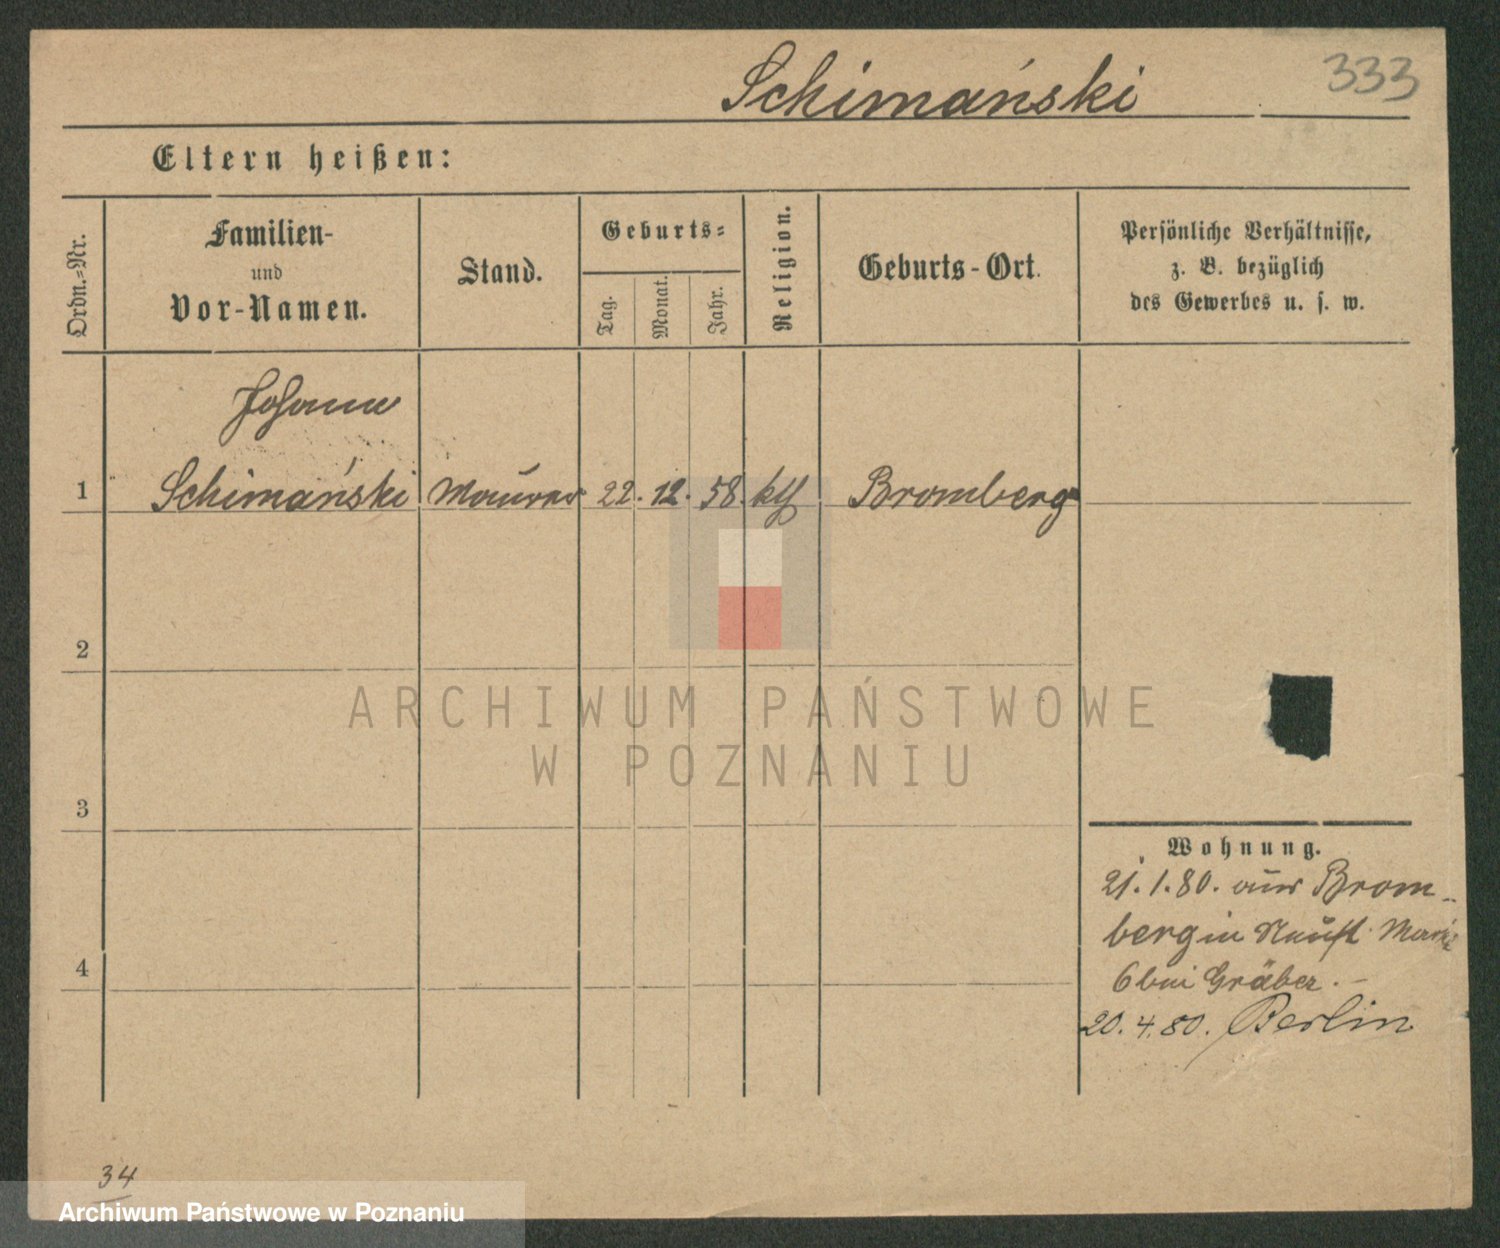 Schimański 333
Eltern heißen:
Ordn.=Nr.
Familien-
und
Vor-Namen.
Stand.
Geburts=
Tag.
Monat.
Jahr.
Religion.
Geburts-Ort.
Persönliche Verhältnisse,
z. B. bezüglich
des Gewerbes u. s. w.
Johann
1 Schimański Maurer 22. 12. 58. kth Bromberg
2
3
4
ARCHIWUM PAŃSTWOWE
W POZNANIU
Wohnung.
21.1.80. aus Brom-
berg in
6 bei Gräber.-
20.4.80. Berlin
34
Archiwum Państwowe w Poznaniu